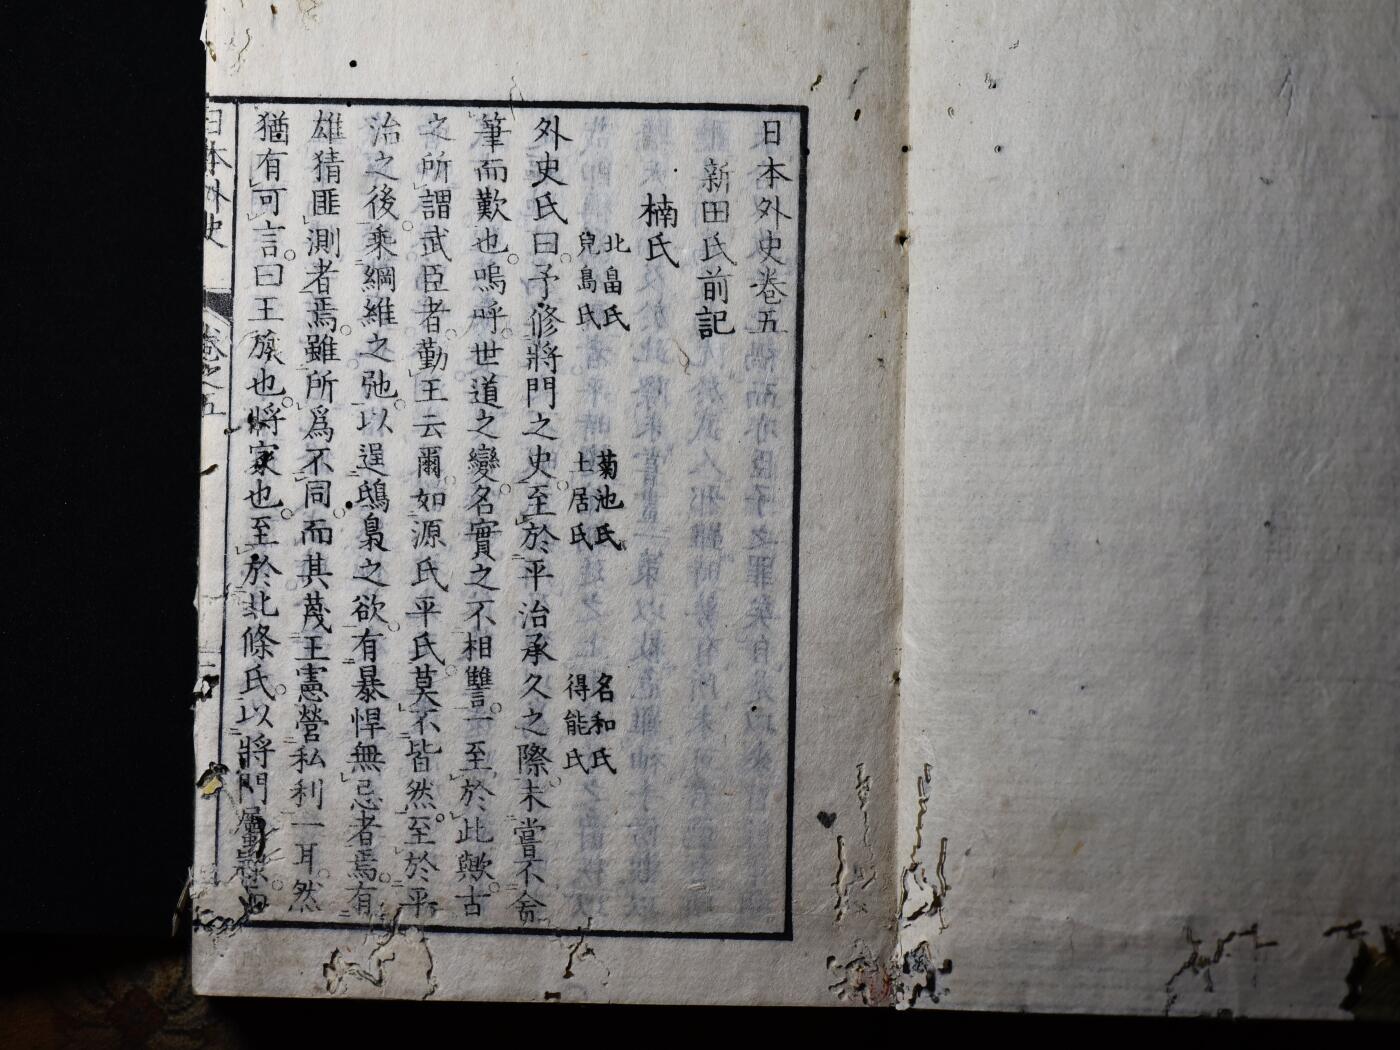 日本外史卷五
新田氏前記
楠氏
北畠氏 菊池氏 名和氏
兒島氏 土居氏 得能氏
外史氏曰。予修將門之史。至於平治承久之際。未嘗不舍
筆而歎也。嗚呼。世道之變。名實之不相讐。一至於此歟。古
之所謂武臣者。勤王云爾。如源氏平氏。莫不皆然。至於平
治之後。乘綱維之弛。以逞鴟梟之欲。有暴悍無忌者焉。有
雄猜匪測者焉。雖所爲不同。而其蔑王憲營私利一耳。然
猶有可言。曰王族也。將家也。至於北條氏。以將門屬隸
日本外史 卷之五